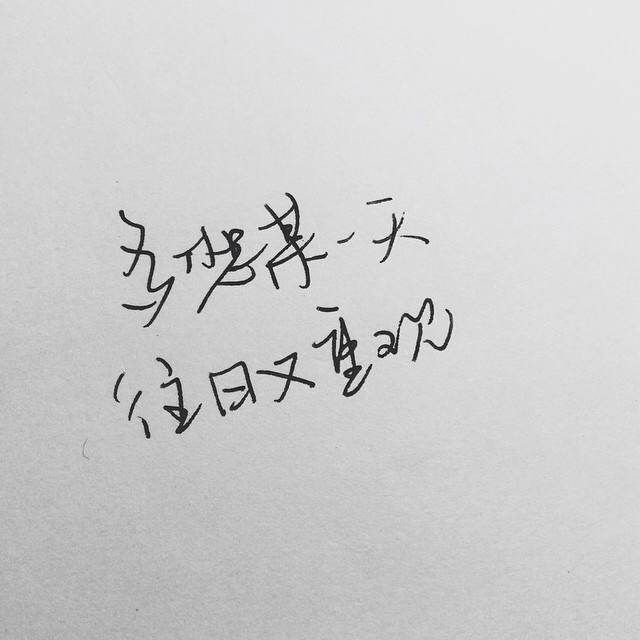 多想某一天
往日又重现